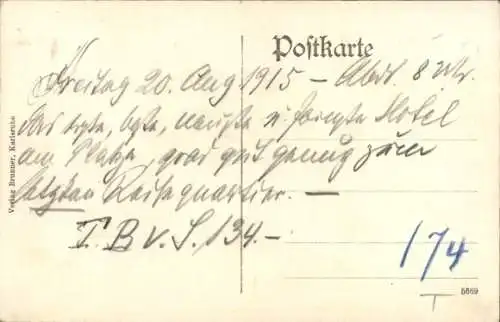 Postkarte
Freitag 20. Aug 1915 – Abds. 8 Uhr.
das erste, beste, neuste u. Hotel
am Platze, grad gut genug zum
letzten Reisequartier. —
T. B. v. S. 134.–
174
T
5869
Verlag Brunner, Karlsruhe